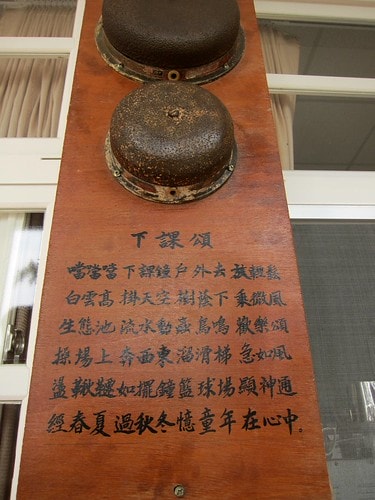 下課頌
噹噹當下課鐘戶外去放輕鬆
白雲高掛天空樹蔭下乘微風
生態池流水動蟲鳥鳴歡樂頌
操場上奔西東溜滑梯急如風
盪鞦韆如擺鐘籃球場顯神通
經春夏過秋冬憶童年在心中。